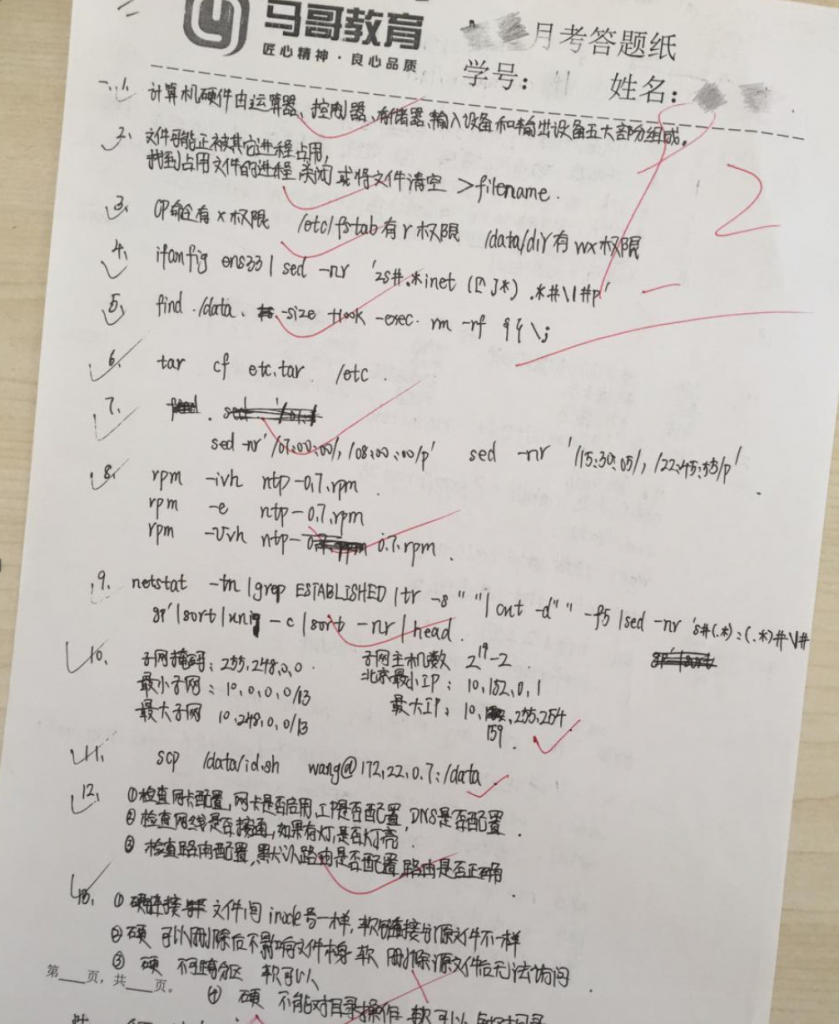 马哥教育
匠心精神·良心品质
月考答题纸
学号: 姓名:
一.1. 计算机硬件由运算器、控制器、存储器、输入设备和输出设备五大部分组成。
12
2. 文件可能正被其它进程占用,
找到占用文件的进程 关闭 或将文件清空 >filename.
3. CP命令有x权限 /etc/fstab有r权限 /data/dir有wx权限
4. ifonfig ens33 | sed -nr '2s#.*inet ([^ ]*) .*#\1#p'
5. find ./data. -size +100k -exec. rm -rf {} \;
6. tar cf etc.tar. /etc.
7.
sed -nr '/07:00:00/,/08:00:00/p' sed -nr '/15:30:05/,/22:45:55/p'.
8. rpm -ivh ntp-0.7.rpm.
rpm -e ntp-0.7.rpm
rpm -Uvh ntp- 0.7.rpm.
9. netstat -tn |grep ESTABLISHED |tr -s " "| cut -d" " -f5 |sed -nr 's#(.*):(.*)#\1#
gp'|sort|uniq -c |sort -nr |head.
10. 子网掩码:255.248.0.0. 子网主机数 2^19-2.
最小子网:10.0.0.0/13 北京最小IP:10.152.0.1
最大子网 10.248.0.0/13 最大IP:10.159.255.254.
11. scp /data/id.sh wang@172.22.0.7:/data
12. ①检查网卡配置,网卡是否启用,IP是否配置,DNS是否配置.
②检查网线是否接通,如果有灯,是否灯亮.
③ 检查路由配置,默认路由是否配置,路由是否正确
13. ①硬链接 文件间inode号一样,软链接与源文件不一样
②硬 可以删除后不影响文件本身 软 删除源文件后无法访问
③ 硬 不可跨分区 软可以
第 页,共 页。
④ 硬 不能对目录操作 软可以